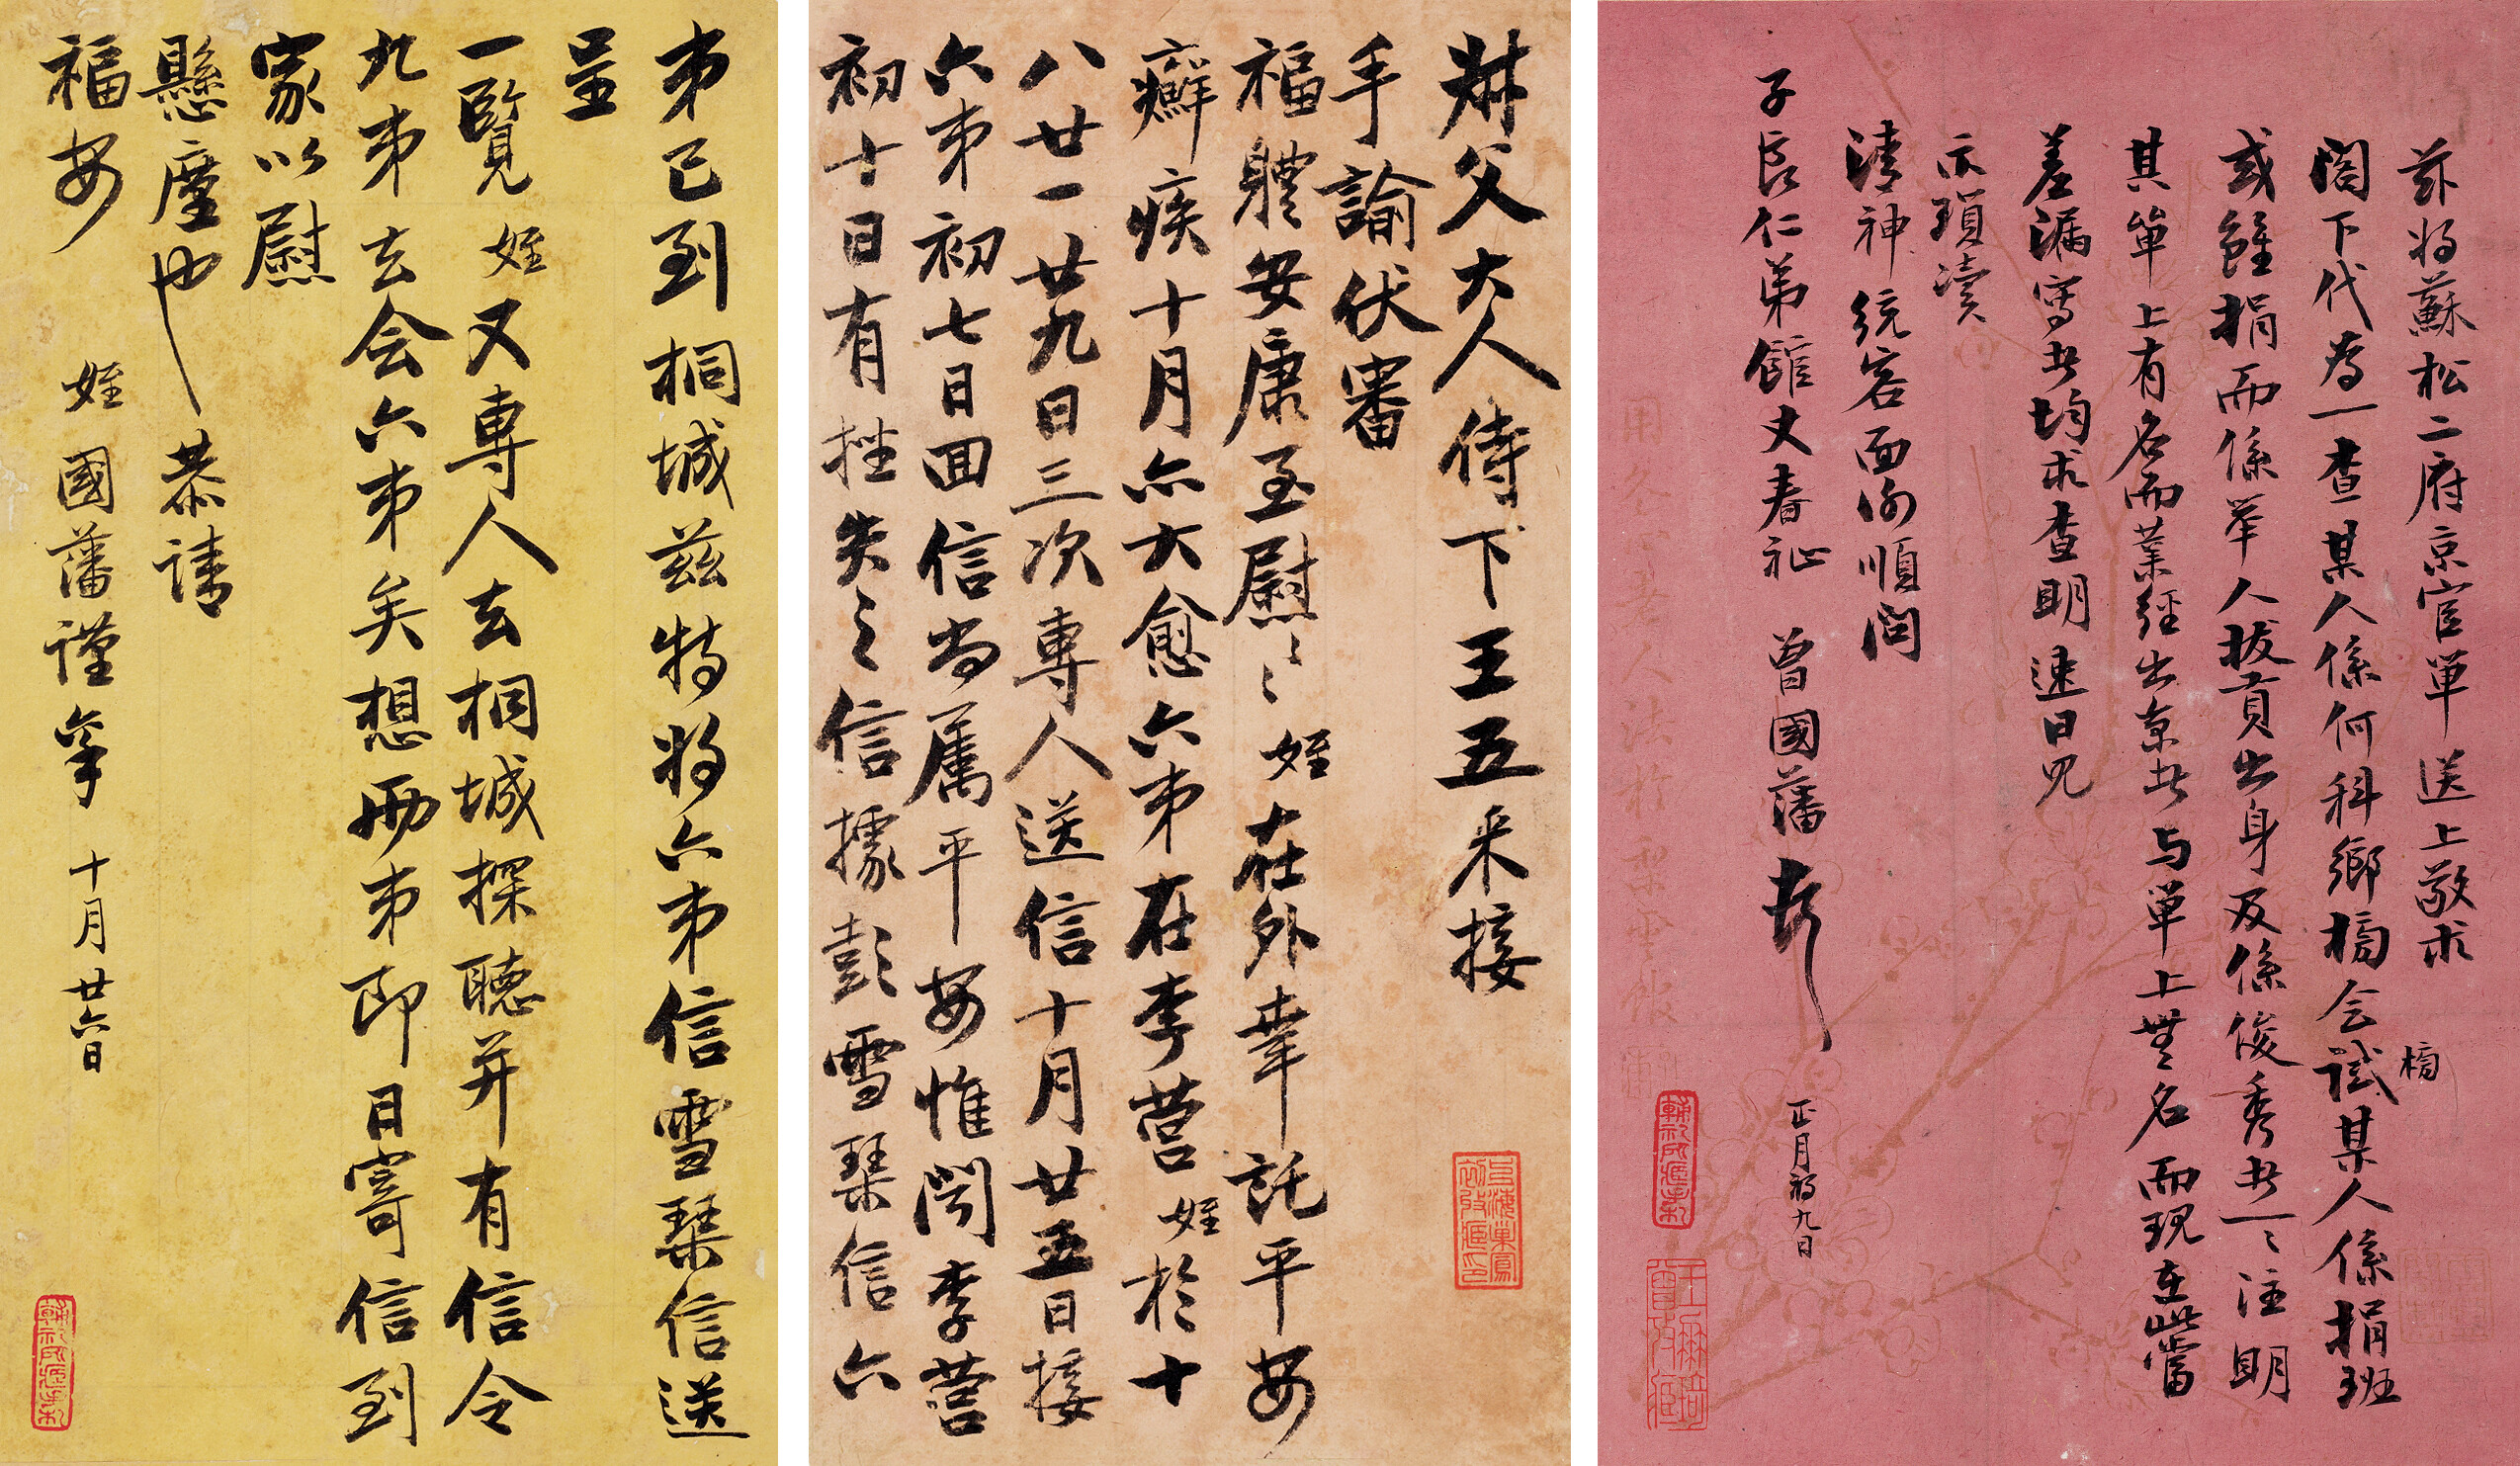 茲將蘇松二府京官單送上敬求
閣下代為一查某人係何科鄉榜会試榜某人係捐班
或雖捐而係举人拔貢出身及係俊秀者一一注明
其單上有名而業經出京者与單上無名而現在此當
差漏寫者均求查明速日兄
示瑣瀆
清神統容面谢順問
子良仁弟館丈春祉 曾國藩頓 正月初九日
叔父大人侍下王五来接
手諭伏審
福體安康至慰〻〻姪在外幸託平安
癬疾十月亦大愈六弟在李营姪於十
八廿一廿九日三次專人送信十月廿五日接
六弟初七日回信尚属平安惟闻李营
初十日有挫失之信據彭雪琴信六
弟已到桐城兹特将六弟信雪琴信送
呈
一覽姪又專人去桐城探聽并有信令
九弟去会六弟矣想两弟即日寄信到
家以慰
懸廑也恭请
福安 姪國藩谨稟 十月廿六日